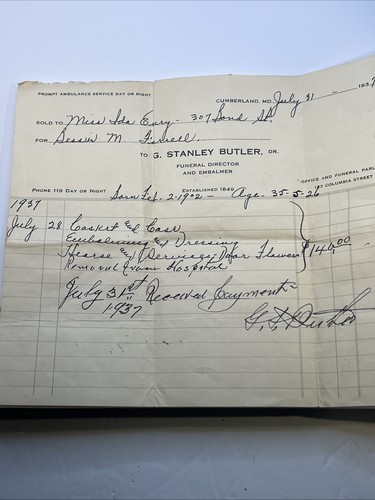 PROMPT AMBULANCE SERVICE DAY OR NIGHT
CUMBERLAND, MD. July 31 — 1937
SOLD TO Miss Ida Eury - 307 Bond St.
FOR Bessie M. Firrell
TO G. STANLEY BUTLER, DR.
FUNERAL DIRECTOR
AND EMBALMER
OFFICE AND FUNERAL PARL
COLUMBIA STREET
PHONE 119 DAY OR NIGHT
ESTABLISHED 1849
Born Feb. 2-1902 — Age. 35-5-26
1937
July 28 Casket and Case
Embalming and Dressing
Hearse and Services, Door Flowers
Removal from Hospital
140.00
July 31st Received Payment
1937
G. S. Butler